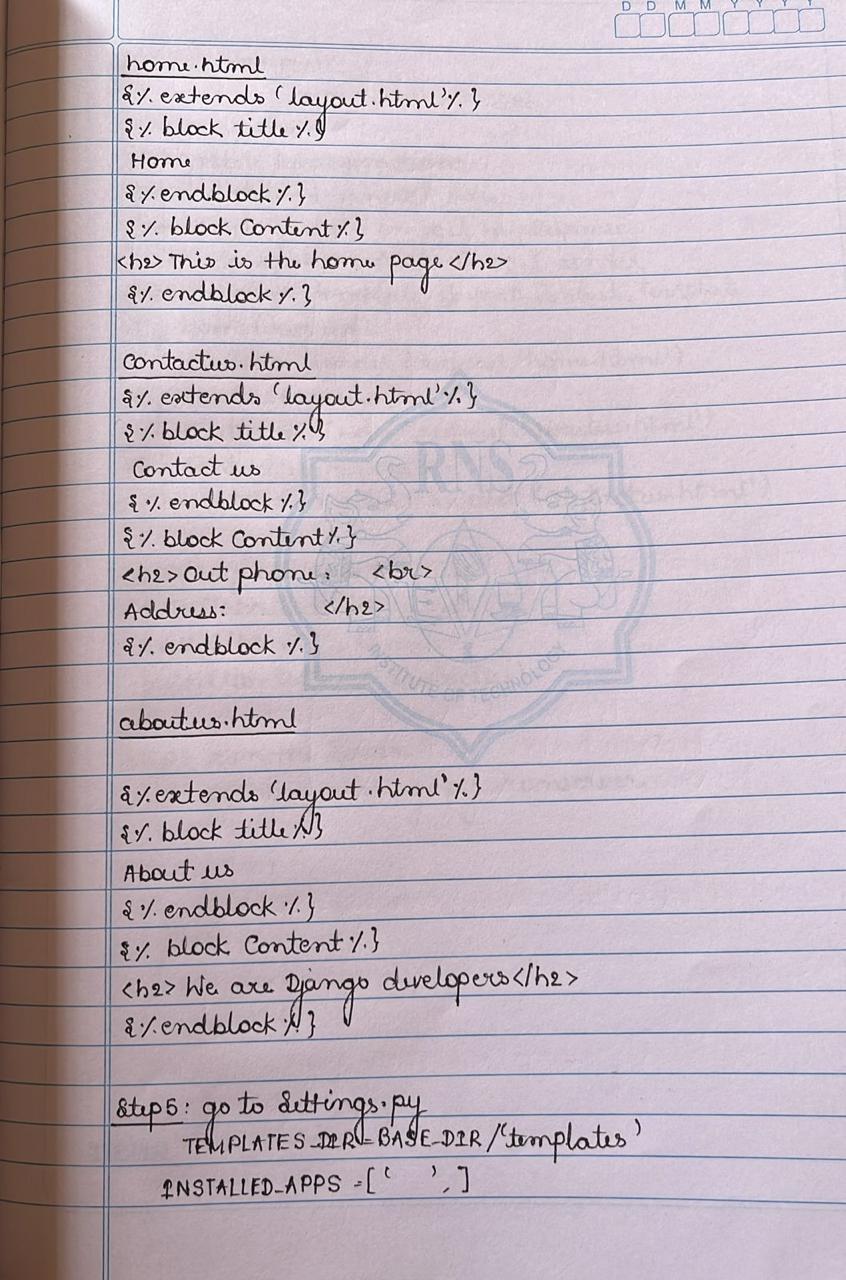 D D M M Y Y Y Y
home.html
{% extends 'layout.html' %}
{% block title %}
Home
{% endblock %}
{% block Content %}
<h2> This is the home page </h2>
{% endblock %}
Contactus.html
{% extends 'layout.html' %}
{% block title %}
Contact us
{% endblock %}
{% block Content %}
<h2> Out phone: <br>
Address: </h2>
{% endblock %}
aboutus.html
{% extends 'layout.html' %}
{% block title %}
About us
{% endblock %}
{% block Content %}
<h2> We are Django developers </h2>
{% endblock %}
Step 5: go to Settings.py
TEMPLATES_DIR = BASE_DIR / 'templates'
INSTALLED_APPS = [' ', ]
RNS
INSTITUTE OF TECHNOLOGY